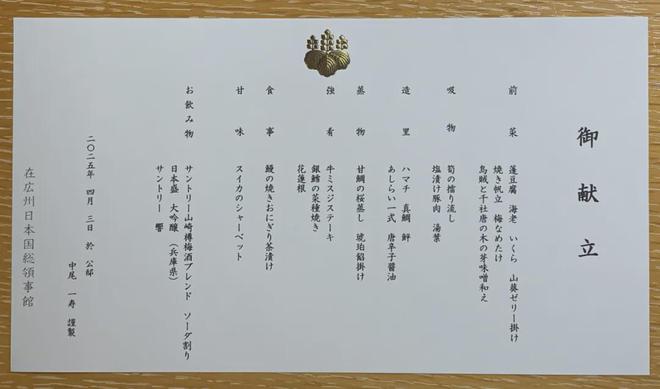 御献立
前菜
蓬豆腐 海老 いくら 山葵ゼリー掛け
焼き帆立 梅なめたけ
烏賊と千社唐の木の芽味噌和え
吸物
筍の擂り流し
塩漬け豚肉 湯葉
造里
ハマチ 真鯛 鮃
あしらい一式 唐辛子醬油
蒸物
甘鯛の桜蒸し 琥珀餡掛け
強肴
牛ミスジステーキ
銀鱈の菜種焼き
花蓮根
食事
鰻の焼きおにぎり茶漬け
甘味
スイカのシャーベット
お飲み物
サントリー山崎樽梅酒ブレンド ソーダ割り
日本盛 大吟醸 (兵庫県)
サントリー 響
二〇二五年 四月 三日 於 公邸
中尾 一寿 謹製
在広州日本国総領事館